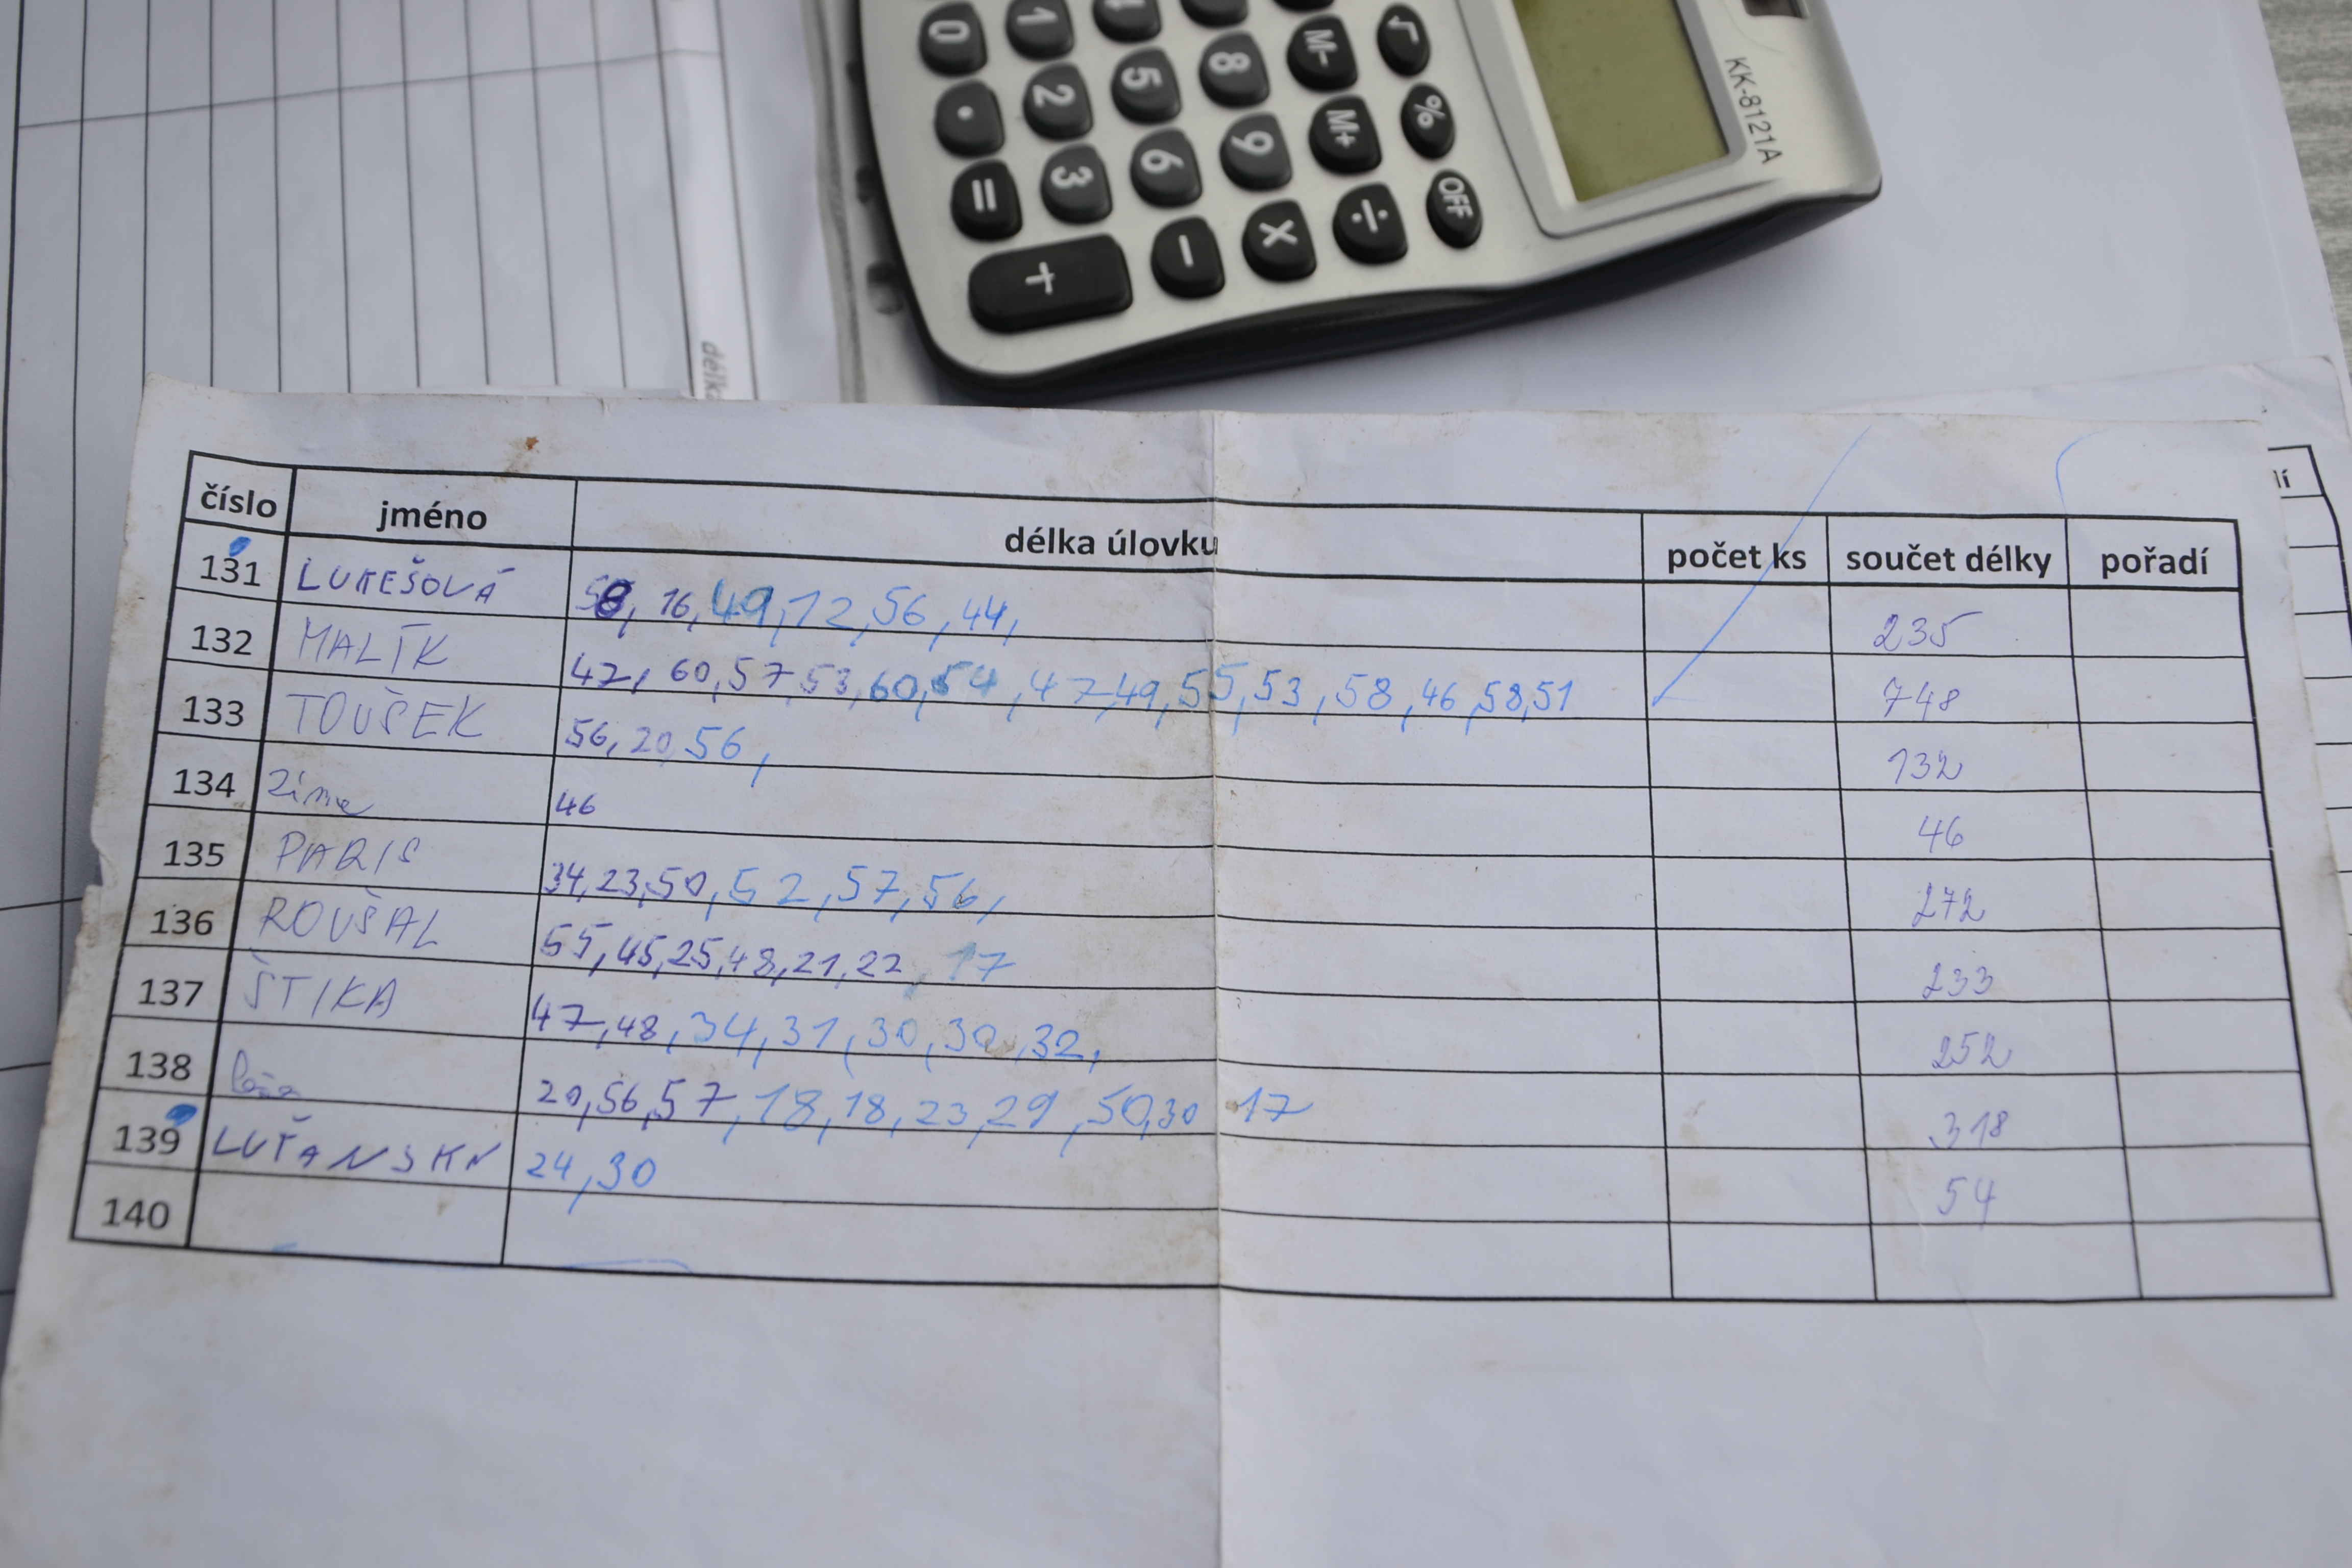 0 1 4
. 2 5 8 M- √
= 3 6 9 M+ %
+ - × ÷ OFF
KK-8121A
délka
číslo jméno délka úlovku počet ks součet délky pořadí
131 LUKEŠOVÁ 58, 16, 49, 12, 56, 44, 235
132 MALÍK 47, 60, 57, 53, 60, 54, 47, 49, 55, 53, 58, 46, 58, 51 748
133 TOUŠEK 56, 20, 56, 132
134 Zima 46 46
135 PARIS 34, 23, 50, 52, 57, 56, 272
136 ROUŠAL 55, 45, 25, 48, 21, 22, 17 233
137 ŠTIKA 47, 48, 34, 31, 30, 30, 32, 252
138 20, 56, 57, 18, 18, 23, 29, 50, 30 17 318
139 LUŤANSKÝ 24, 30 54
140